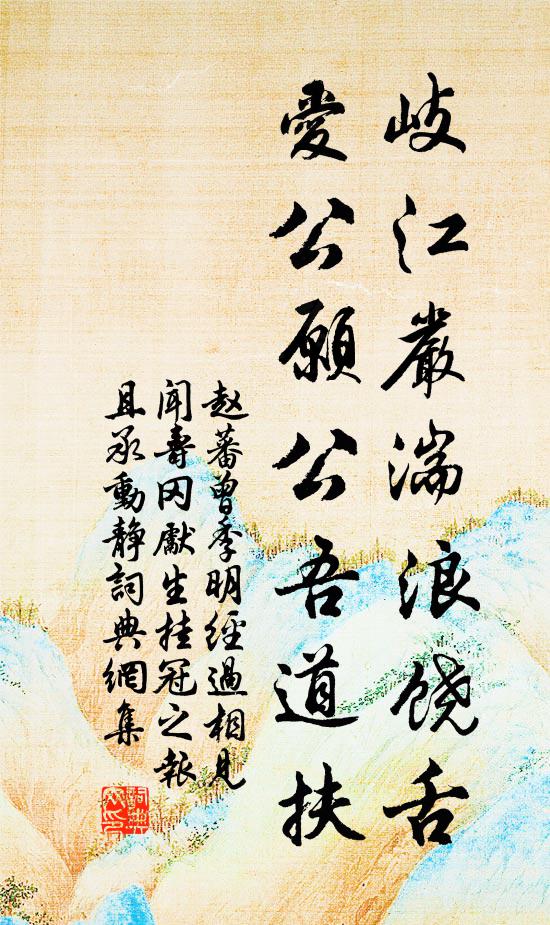 岐江嚴湍浪饒舌
愛公願公吾道扶
赵蕃曾季明經過相見
聞壽冈獻生挂冠之報
且承動靜詞典網集